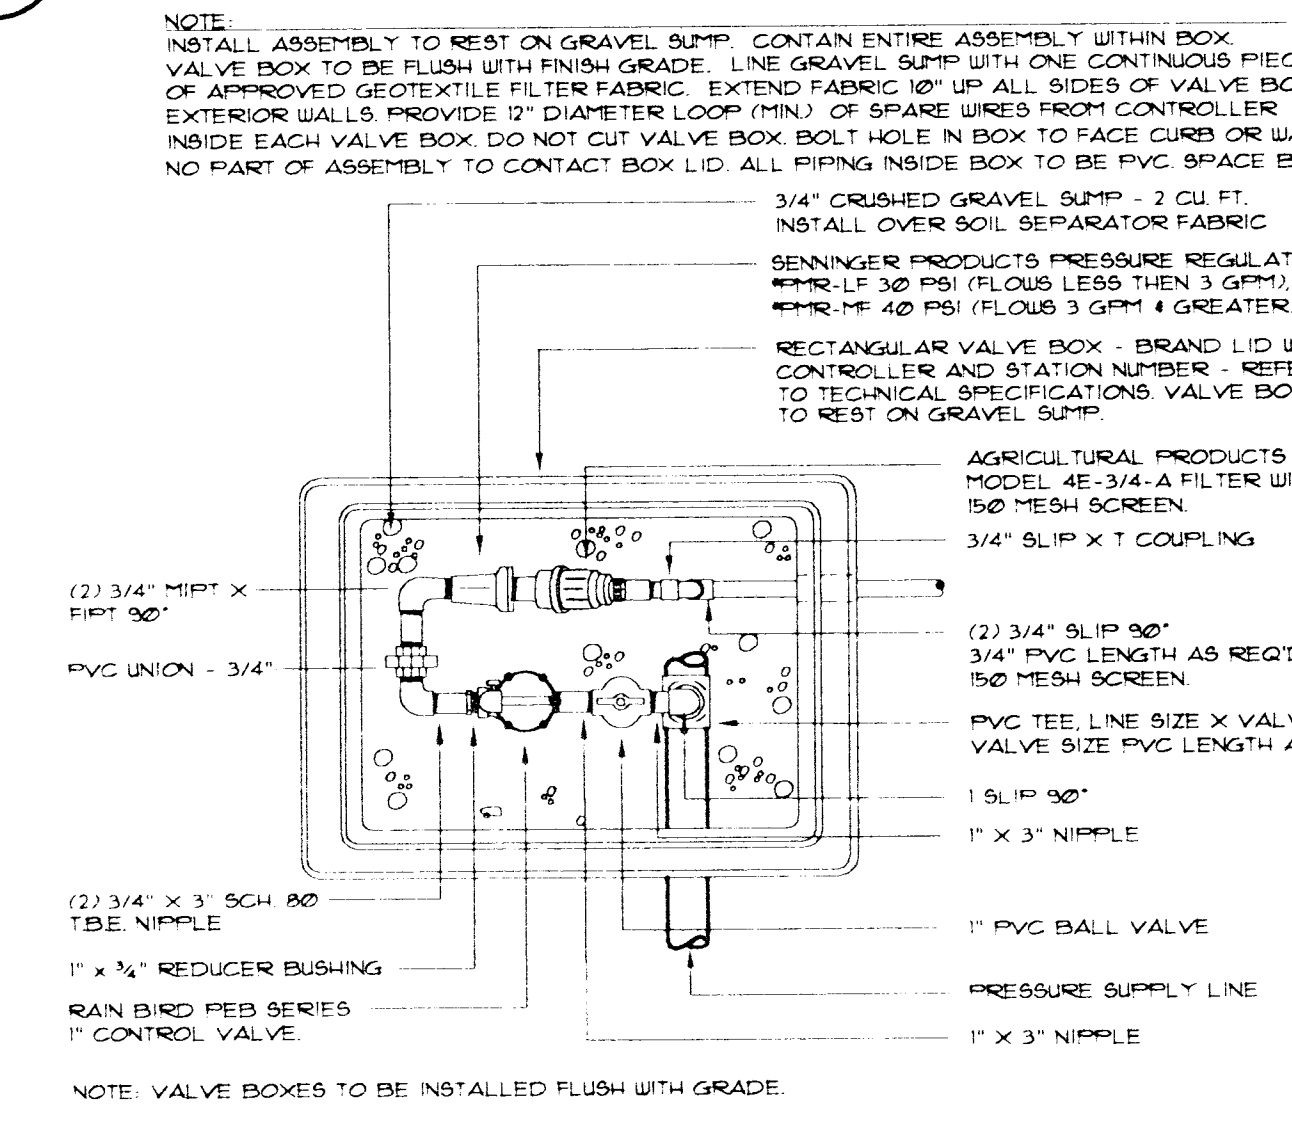 NOTE:
INSTALL ASSEMBLY TO REST ON GRAVEL SUMP. CONTAIN ENTIRE ASSEMBLY WITHIN BOX.
VALVE BOX TO BE FLUSH WITH FINISH GRADE. LINE GRAVEL SUMP WITH ONE CONTINUOUS PIEC
OF APPROVED GEOTEXTILE FILTER FABRIC. EXTEND FABRIC 10" UP ALL SIDES OF VALVE BO
EXTERIOR WALLS. PROVIDE 12" DIAMETER LOOP (MIN.) OF SPARE WIRES FROM CONTROLLER
INSIDE EACH VALVE BOX. DO NOT CUT VALVE BOX. BOLT HOLE IN BOX TO FACE CURB OR WA
NO PART OF ASSEMBLY TO CONTACT BOX LID. ALL PIPING INSIDE BOX TO BE PVC. SPACE B
3/4" CRUSHED GRAVEL SUMP - 2 CU. FT.
INSTALL OVER SOIL SEPARATOR FABRIC
SENNINGER PRODUCTS PRESSURE REGULAT
#PMR-LF 30 PSI (FLOWS LESS THEN 3 GPM),
#PMR-MF 40 PSI (FLOWS 3 GPM & GREATER
RECTANGULAR VALVE BOX - BRAND LID W
CONTROLLER AND STATION NUMBER - REFE
TO TECHNICAL SPECIFICATIONS. VALVE BO
TO REST ON GRAVEL SUMP.
AGRICULTURAL PRODUCTS
MODEL 4E-3/4-A FILTER WI
150 MESH SCREEN.
3/4" SLIP X T COUPLING
(2) 3/4" MIPT X
FIPT 90°
(2) 3/4" SLIP 90°
3/4" PVC LENGTH AS REQ'D
150 MESH SCREEN.
PVC UNION - 3/4"
PVC TEE, LINE SIZE X VALV
VALVE SIZE PVC LENGTH A
1 SLIP 90°
1" X 3" NIPPLE
(2) 3/4" X 3" SCH. 80
T.B.E. NIPPLE
1" PVC BALL VALVE
1" x 3/4" REDUCER BUSHING
PRESSURE SUPPLY LINE
RAIN BIRD PEB SERIES
1" CONTROL VALVE.
1" X 3" NIPPLE
NOTE: VALVE BOXES TO BE INSTALLED FLUSH WITH GRADE.